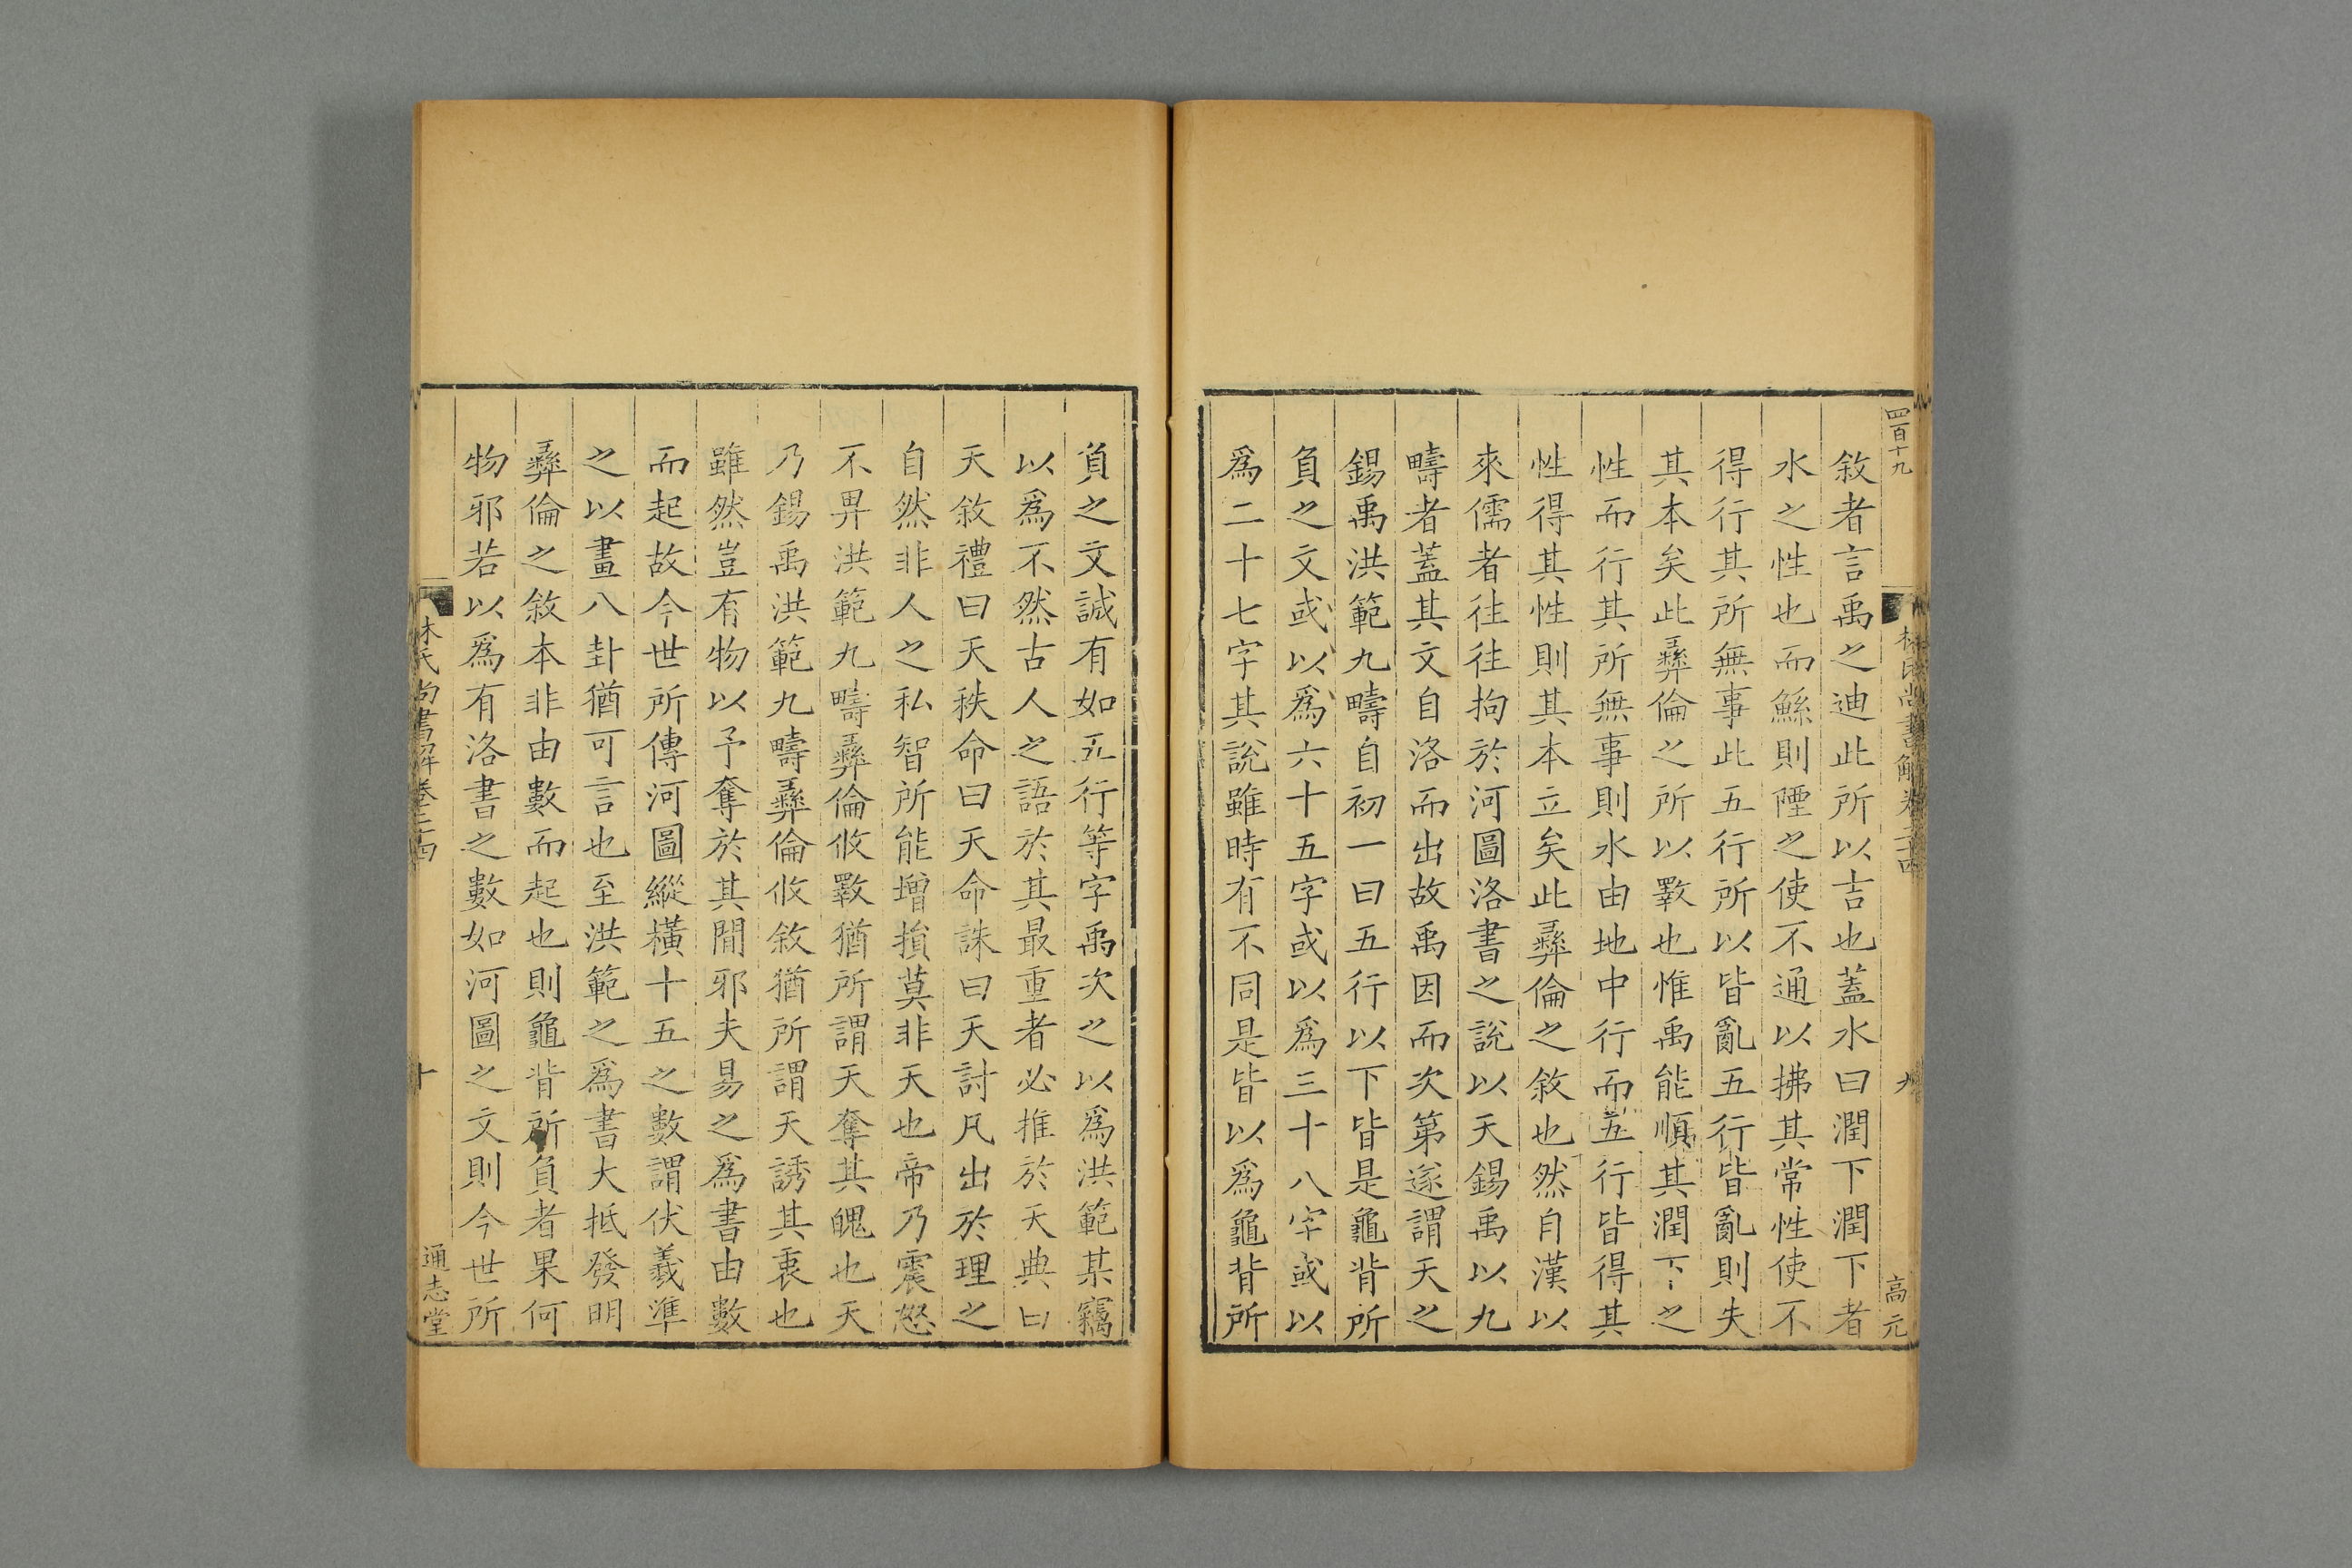 四百十九
林氏尚書解卷二十四
九
高元
敘者言禹之迪此所以吉也蓋水曰潤下潤下者
水之性也而鯀則陻之使不通以拂其常性使不
得行其所無事此五行所以皆亂五行皆亂則失
其本矣此彞倫之所以斁也惟禹能順其潤下之
性而行其所無事則水由地中行而五行皆得其
性得其性則其本立矣此彞倫之敘也然自漢以
來儒者往往拘於河圖洛書之說以天錫禹以九
疇者蓋其文自洛而出故禹因而次第遂謂天之
錫禹洪範九疇自初一曰五行以下皆是龜背所
負之文或以爲六十五字或以爲三十八字或以
爲二十七字其說雖時有不同是皆以爲龜背所
負之文誠有如五行等字禹次之以爲洪範某竊
以爲不然古人之語於其最重者必推於天典曰
天敘禮曰天秩命曰天命誅曰天討凡出於理之
自然非人之私智所能增損莫非天也帝乃震怒
不畀洪範九疇彞倫攸斁猶所謂天奪其魄也天
乃錫禹洪範九疇彞倫攸敘猶所謂天誘其衷也
雖然豈有物以予奪於其間邪夫易之爲書由數
而起故今世所傳河圖縱橫十五之數謂伏羲準
之以畫八卦猶可言也至洪範之爲書大抵發明
彞倫之敘本非由數而起也則龜背所負者果何
物邪若以爲有洛書之數如河圖之文則今世所
林氏尚書解卷二十四
十
通志堂